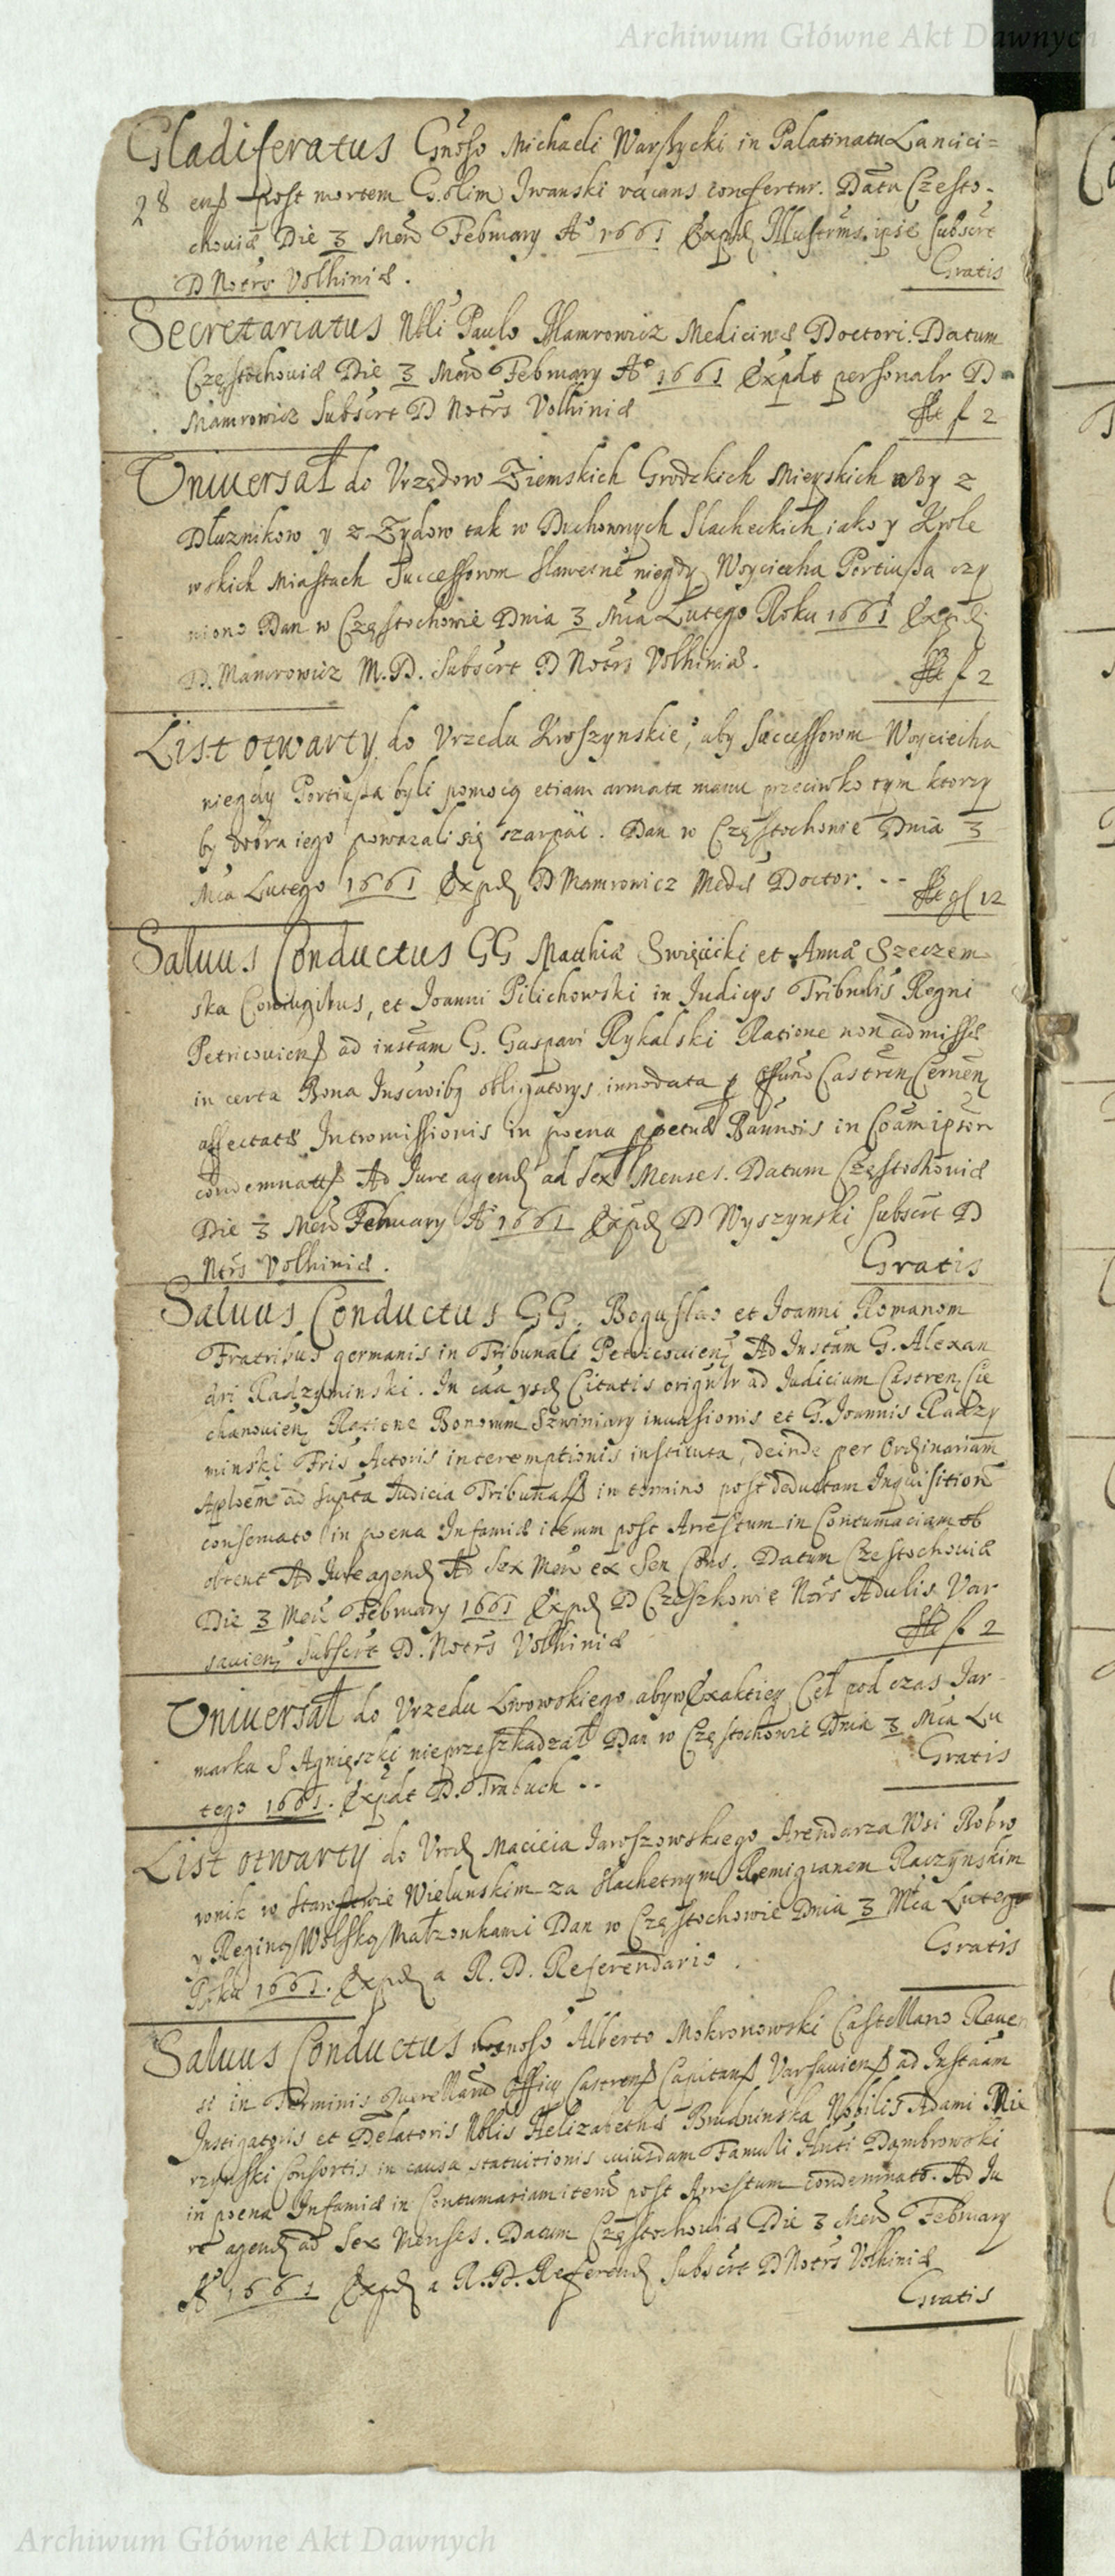 Archiwum Główne Akt Dawnych
Gladiferatus Gnoso Michaeli Warszycki in Palatinatu Lancici=
28 ensß post mortem G. olim Iwanski vacans confertur. Datu Czesto-
chouiæ Die 3 Mens February Aº 1661 Expd Illustrms. ipse subscrt
D Notrs Volhiniæ.
Gratis
Secretariatus Nbli Paulo Mamrowicz Medicinæ Doctori. Datum
Częstochouiæ Die 3 Mens February Aº 1661 Expdt personalr D
Mamrowicz Subscrt D Notrs Volhiniæ
f 2
Uniuersał do Vrzędow Ziemskich Grodzkich Mieyskich aby z
Dłuznikow y z Zydow tak w Duchownych Slacheckich iako y Krole
wskich Miastach Successorom Sławetne niegdy Woyciecha Portiusza czy
niono Dan w Częstochowie Dnia 3 Mca Lutego Roku 1661 Expd
D. Mamrowicz M.D. Subscrt D Notrs Volhiniæ.
f 2
List otwarty do Vrzedu Kroszynskie, aby Successorom Woyciecha
niegdy Portiusza byli pomocą etiam armata manu przeciwko tym ktorzy
by dobra iego powazali się szarpac. Dan w Częstochowie Dnia 3
Mca Lutego 1661 Expd D Mamrowicz Meds Doctor.
gl 12
Saluus Conductus GG Mathiæ Swięcicki et Annæ Szeczem
ska Coniugibus, et Joanni Pilichowski in Judicys Tribnlis Regni
Petricouiensß ad instam G. Gaspari Rykalski Ratione non admissæ
in certa Bona Inscribg obligatorys innodata p Offum Castren Cernen
affectatæ Intromissionis in poena ppetuæ Bannois in Coam ipsor
condemnatsß Ad Iure agend ad sex Menses. Datum Częstochouiæ
Die 3 Mens February Aº 1661 Expd D Wyszynski subscrt D
Ntrs Volhiniæ.
Gratis
Saluus Conductus GG. Boguslao et Joanni Romanom
Fratribus germanis in Tribunali Petricouiens Ad Instam G. Alexan
dri Radzyminski. In caa ysd Citatis origntr ad Judicium Castren Cie
chanouien Ratione Bonorum Szwiniary inuasionis et G. Joannis Radzy
minski Fris Actoris interemptionis instituta, deinde per Ordinariam
Apploem ad supta Judicia Tribunalß in termino post deductam Inquisition
conseruato in poena Infamiæ iterum post Arrestum in Contumaciam ob
obtent Ad Iure agend Ad Sex Mens ex Sen Cons. Datum Częstochouiæ
Die 3 Mens February 1661 Expd D Czeszkowie Notrs Adulis Var
sauiens Subscrt D. Notrs Volhiniæ
f 2
Uniuersał do Vrzedu Lwowskiego aby w Exakciey Ceł pod czas Jar
marku S Agnięszki nieprzeszkadzał Dan w Częstochowie Dnia 3 Mca Lu
tego 1661. Expdt D. Trabuch
Gratis
List otwarty do Vrod Macieia Jaroszowskiego Arendarza Wsi Bobro
wnik w Starostwie Wielunskim za Slachetnym Remigianem Raczynskim
y Reginą Wolską Małzonkami Dan w Częstochowie Dnia 3 Mca Lutego
Roku 1661. Expd a R. D. Referendario.
Gratis
Saluus Conductus Alberto Mokronowski Castellano Rauen
si in Terminis Querellarum Officy Castrensß Capitanß Varsauiensß ad Instaam
Instigatoris et Delatoris Nblis Helizabethæ Brudninska Nobilis Adami Mie
rzynski Consortis in causa statuitionis cuiusdam Famuli Dambrowski
in poena Infamiæ in Contumaciam item post Arrestum condemnato. Ad Iu
re agend ad Sex Menses. Datum Częstochouiæ Die 3 Mens February
Aº 1661 Expd a R.D. Referend Subscrt D Notrs Volhiniæ
Gratis
Archiwum Główne Akt Dawnych